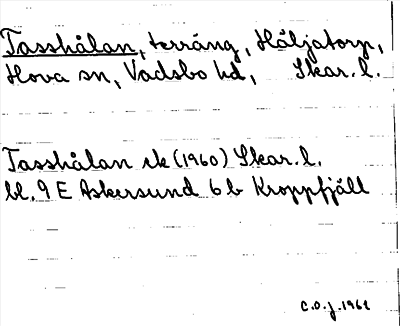 Tasshålan, terräng, Håljatorp,
Hova sn, Vadsbo hd, Skar. l.
Tasshålan ek (1960) Skar. l.
bl. 9 E Askersund 6 b Kroppfjäll
C.O.J. 1961